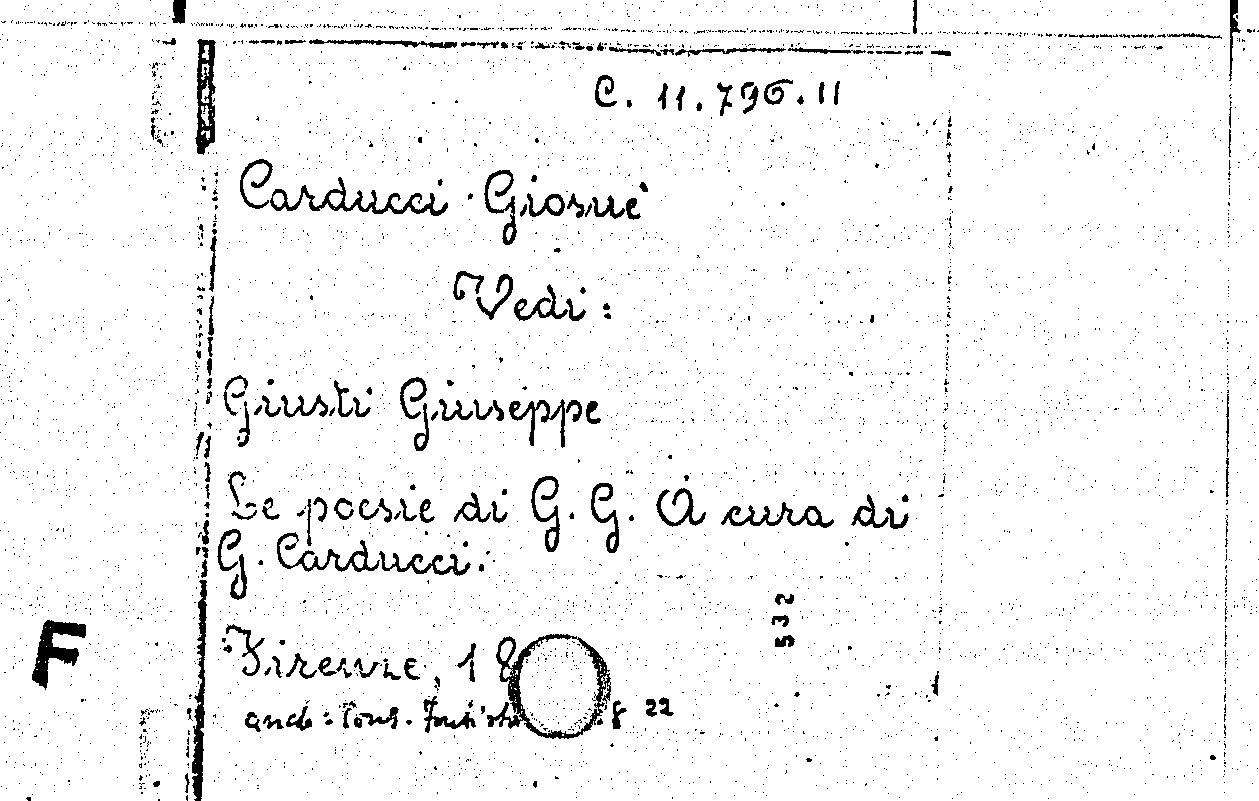 C. 11.796.11
Carducci Giosuè
Vedi:
Giusti Giuseppe
Le poesie di G. G. A cura di
G. Carducci.
532
F
Firenze, 18
22